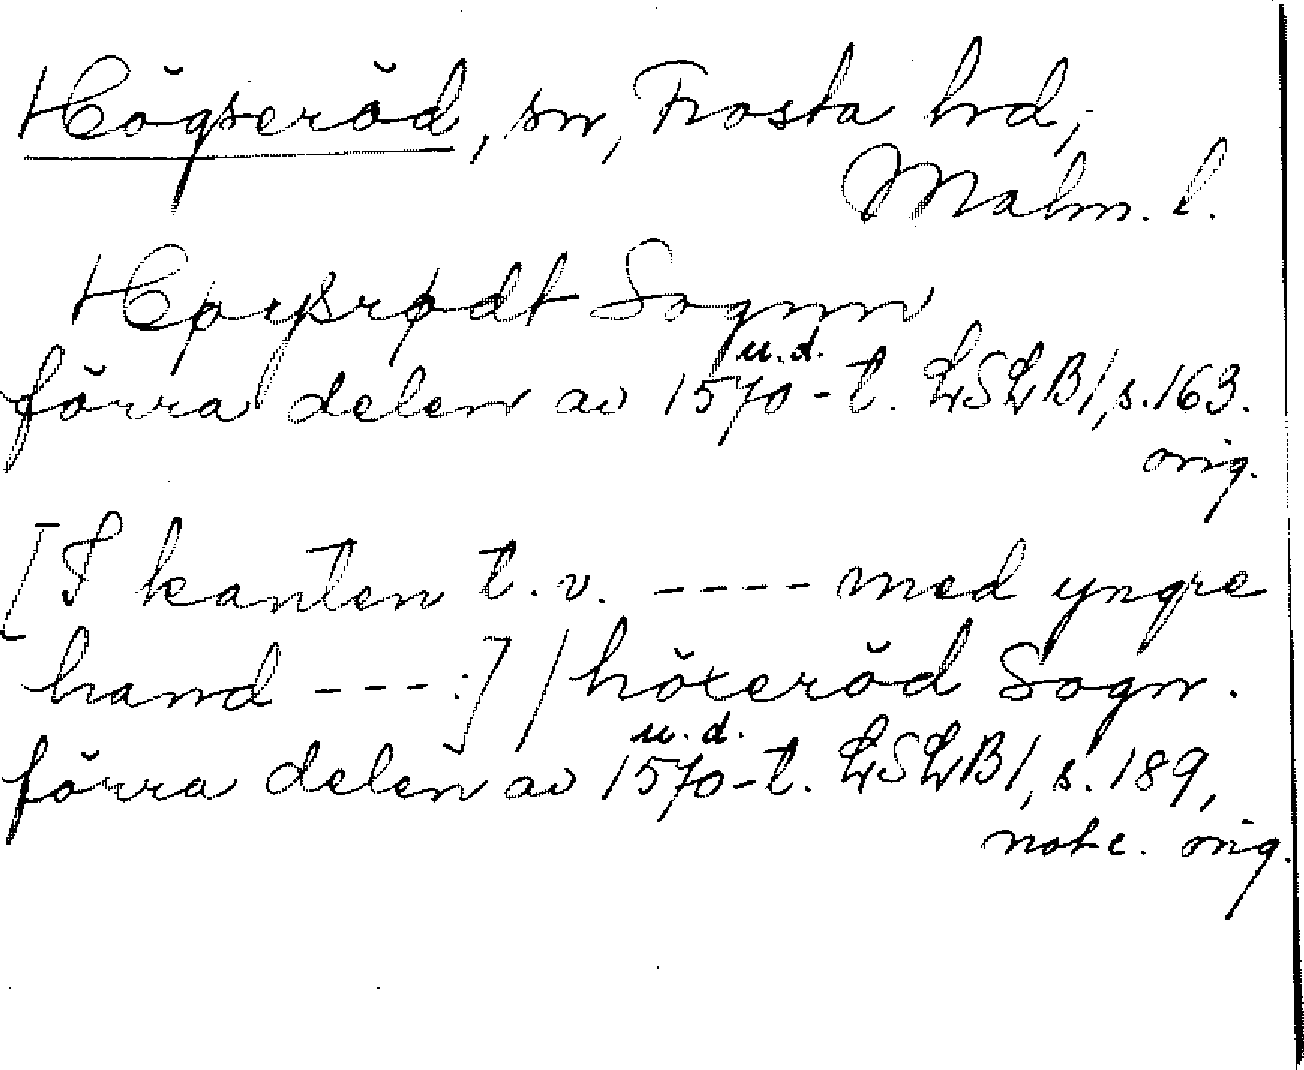 Högseröd, sn, Frosta hrd,
Malm. l.
Høysrødt Sognn
u.d.
förra delen av 1570-t. LSLB1, s.163.
orig.
[I kanten t.v. ---- med yngre
hand ---:] / höxeröd Sogn.
u.d.
förra delen av 1570-t. LSLB1, s.189,
not c. orig.